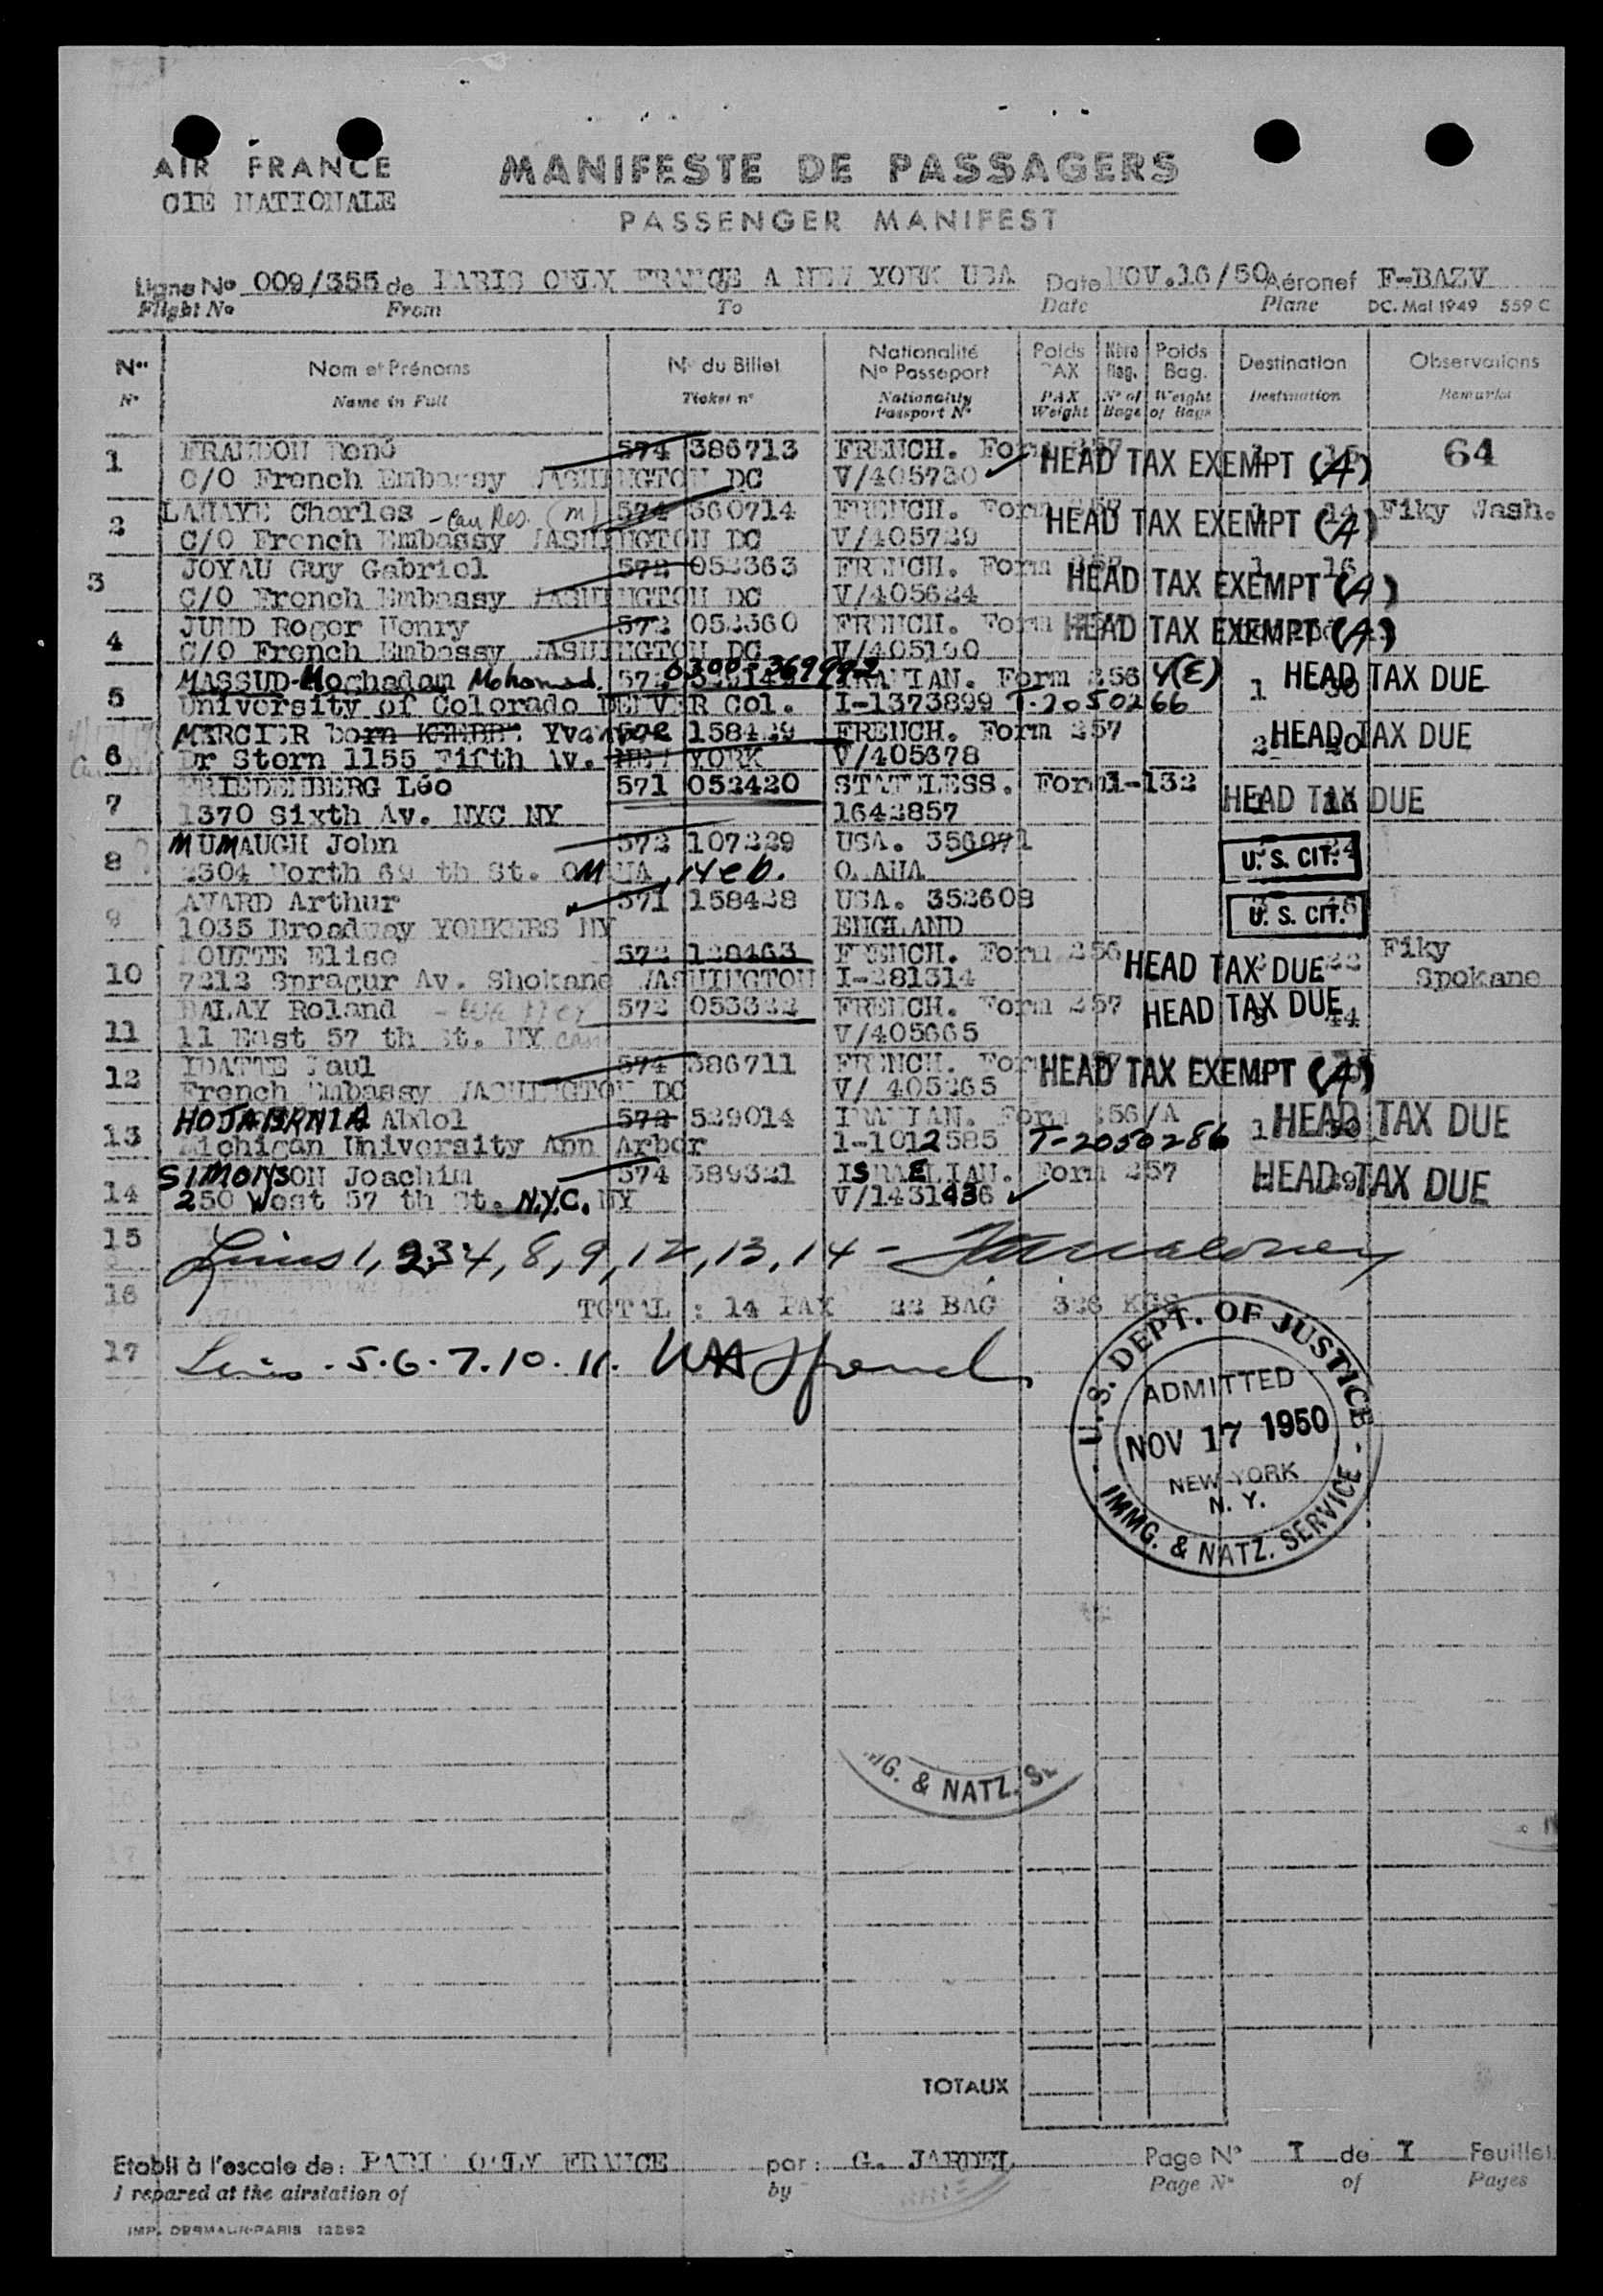 AIR FRANCE
CIE NATIONALE
MANIFESTE DE PASSAGERS
PASSENGER MANIFEST
Ligne No 009/355 de PARIS ORLY FRANCE A NEW YORK USA Date NOV.16/50 Aéronef F-BAZV
Flight No From To Date Plane DC. Mai 1949 559 C
Nos Nom et Prénoms No du Billet Nationalité No Passeport Poids PAX Nbre Bag. Poids Bag. Destination Observations
No Name in Full Ticket no Nationality Passport No PAX Weight No of Bags Weight of Bags Destination Remarks
1 FRANDON René 574 386713 FRENCH. Form 257 HEAD TAX EXEMPT (A) 64
C/O French Embassy WASHINGTON DC V/405730
2 LAHAYE Charles - Can Res. (M) 574 360714 FRENCH. Form 257 HEAD TAX EXEMPT (A) Fiky Wash.
C/O French Embassy WASHINGTON DC V/405729
3 JOYAU Guy Gabriel 572 052363 FRENCH. Form HEAD TAX EXEMPT (A) 1 16
C/O French Embassy WASHINGTON DC V/405624
4 JUND Roger Henry 572 052360 FRENCH. Form HEAD TAX EXEMPT (A)
C/O French Embassy WASHINGTON DC
5 MASSUD-Moghadam Mohamed. 572 0300-369992 IRANIAN. Form 256 4(E) 1 30 HEAD TAX DUE
University of Colorado DENVER Col. I-1373899 T-2050266
6 MERCIER born Yvonne 158429 FRENCH. Form 257 2 20 HEAD TAX DUE
Dr Stern 1155 Fifth Av. NEW YORK V/405678
7 FRIEDENBERG Léo 571 052420 STATELESS. Form I-132 HEAD TAX DUE
1370 Sixth Av. NYC NY 1642857
8 MUMAUGH John 572 107229 USA. 356971 24 U. S. CIT.
2504 North 69 th St. OMAHA, Neb. OMAHA
9 AVARD Arthur 571 158428 USA. 352608 U. S. CIT.
1035 Broadway YONKERS NY ENGLAND
10 Elise 572 128463 FRENCH. Form 256 HEAD TAX DUE 22 Fiky
7212 Spragur Av. Shokane WASHINGTON I-281314 Spokane
11 BALAY Roland 572 053322 FRENCH. Form 257 HEAD TAX DUE 44
11 East 57 th St. NY V/405665
12 IDATTE Paul 574 386711 FRENCH. Form HEAD TAX EXEMPT (A)
French Embassy WASHINGTON DC V/ 405265
13 HOJABRNIA Abdol 572 529014 IRANIAN. Form 256/A 1 30 HEAD TAX DUE
Michigan University Ann Arbor I-1012585 T-2050286
14 SIMONSON Joachim 574 389321 ISRAELIAN. Form 257 HEAD TAX DUE
250 West 57 th St. N.Y.C. NY V/1431436
15 Lines 1, 2,3,4, 8, 9, 12, 13, 14 -
16 TOTAL : 14 PAX 22 BAG 326 KGS
17 Lines . 5. 6. 7. 10. 11.
U.S. DEPT. OF JUSTICE
ADMITTED
NOV 17 1950
NEW YORK
N. Y.
IMMG. & NATZ. SERVICE
MG. & NATZ. S
TOTAUX
Etabli à l'escale de : PARIS ORLY FRANCE par : G. JARDEL Page No I de I Feuillets
Prepared at the airstation of by Page No of Pages
IMP. DERMAUR-PARIS 12892